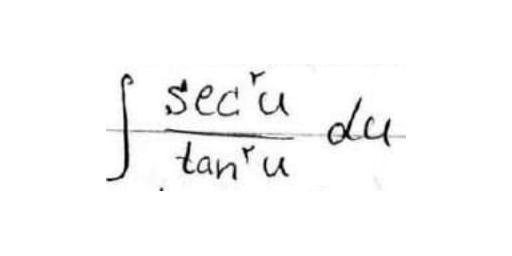 ∫ sec^r u / tan^r u du